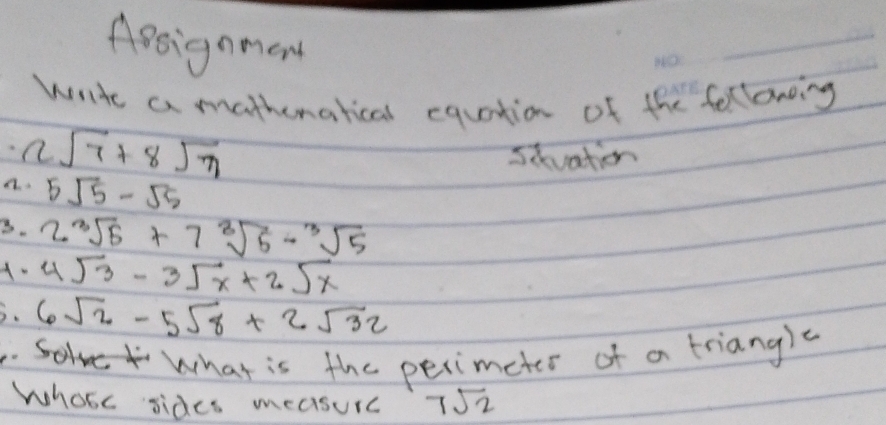 Assignment
NO.
DATE
Write a mathematical equation of the following
situation
. 2√7 + 8√7
2. 5√5 - √5
3. 2∛5 + 7∛5 - ∛5
4. 4√3 - 3√x + 2√x
5. 6√2 - 5√8 + 2√32
. What is the perimeter of a triangle
whose sides measure 7√2